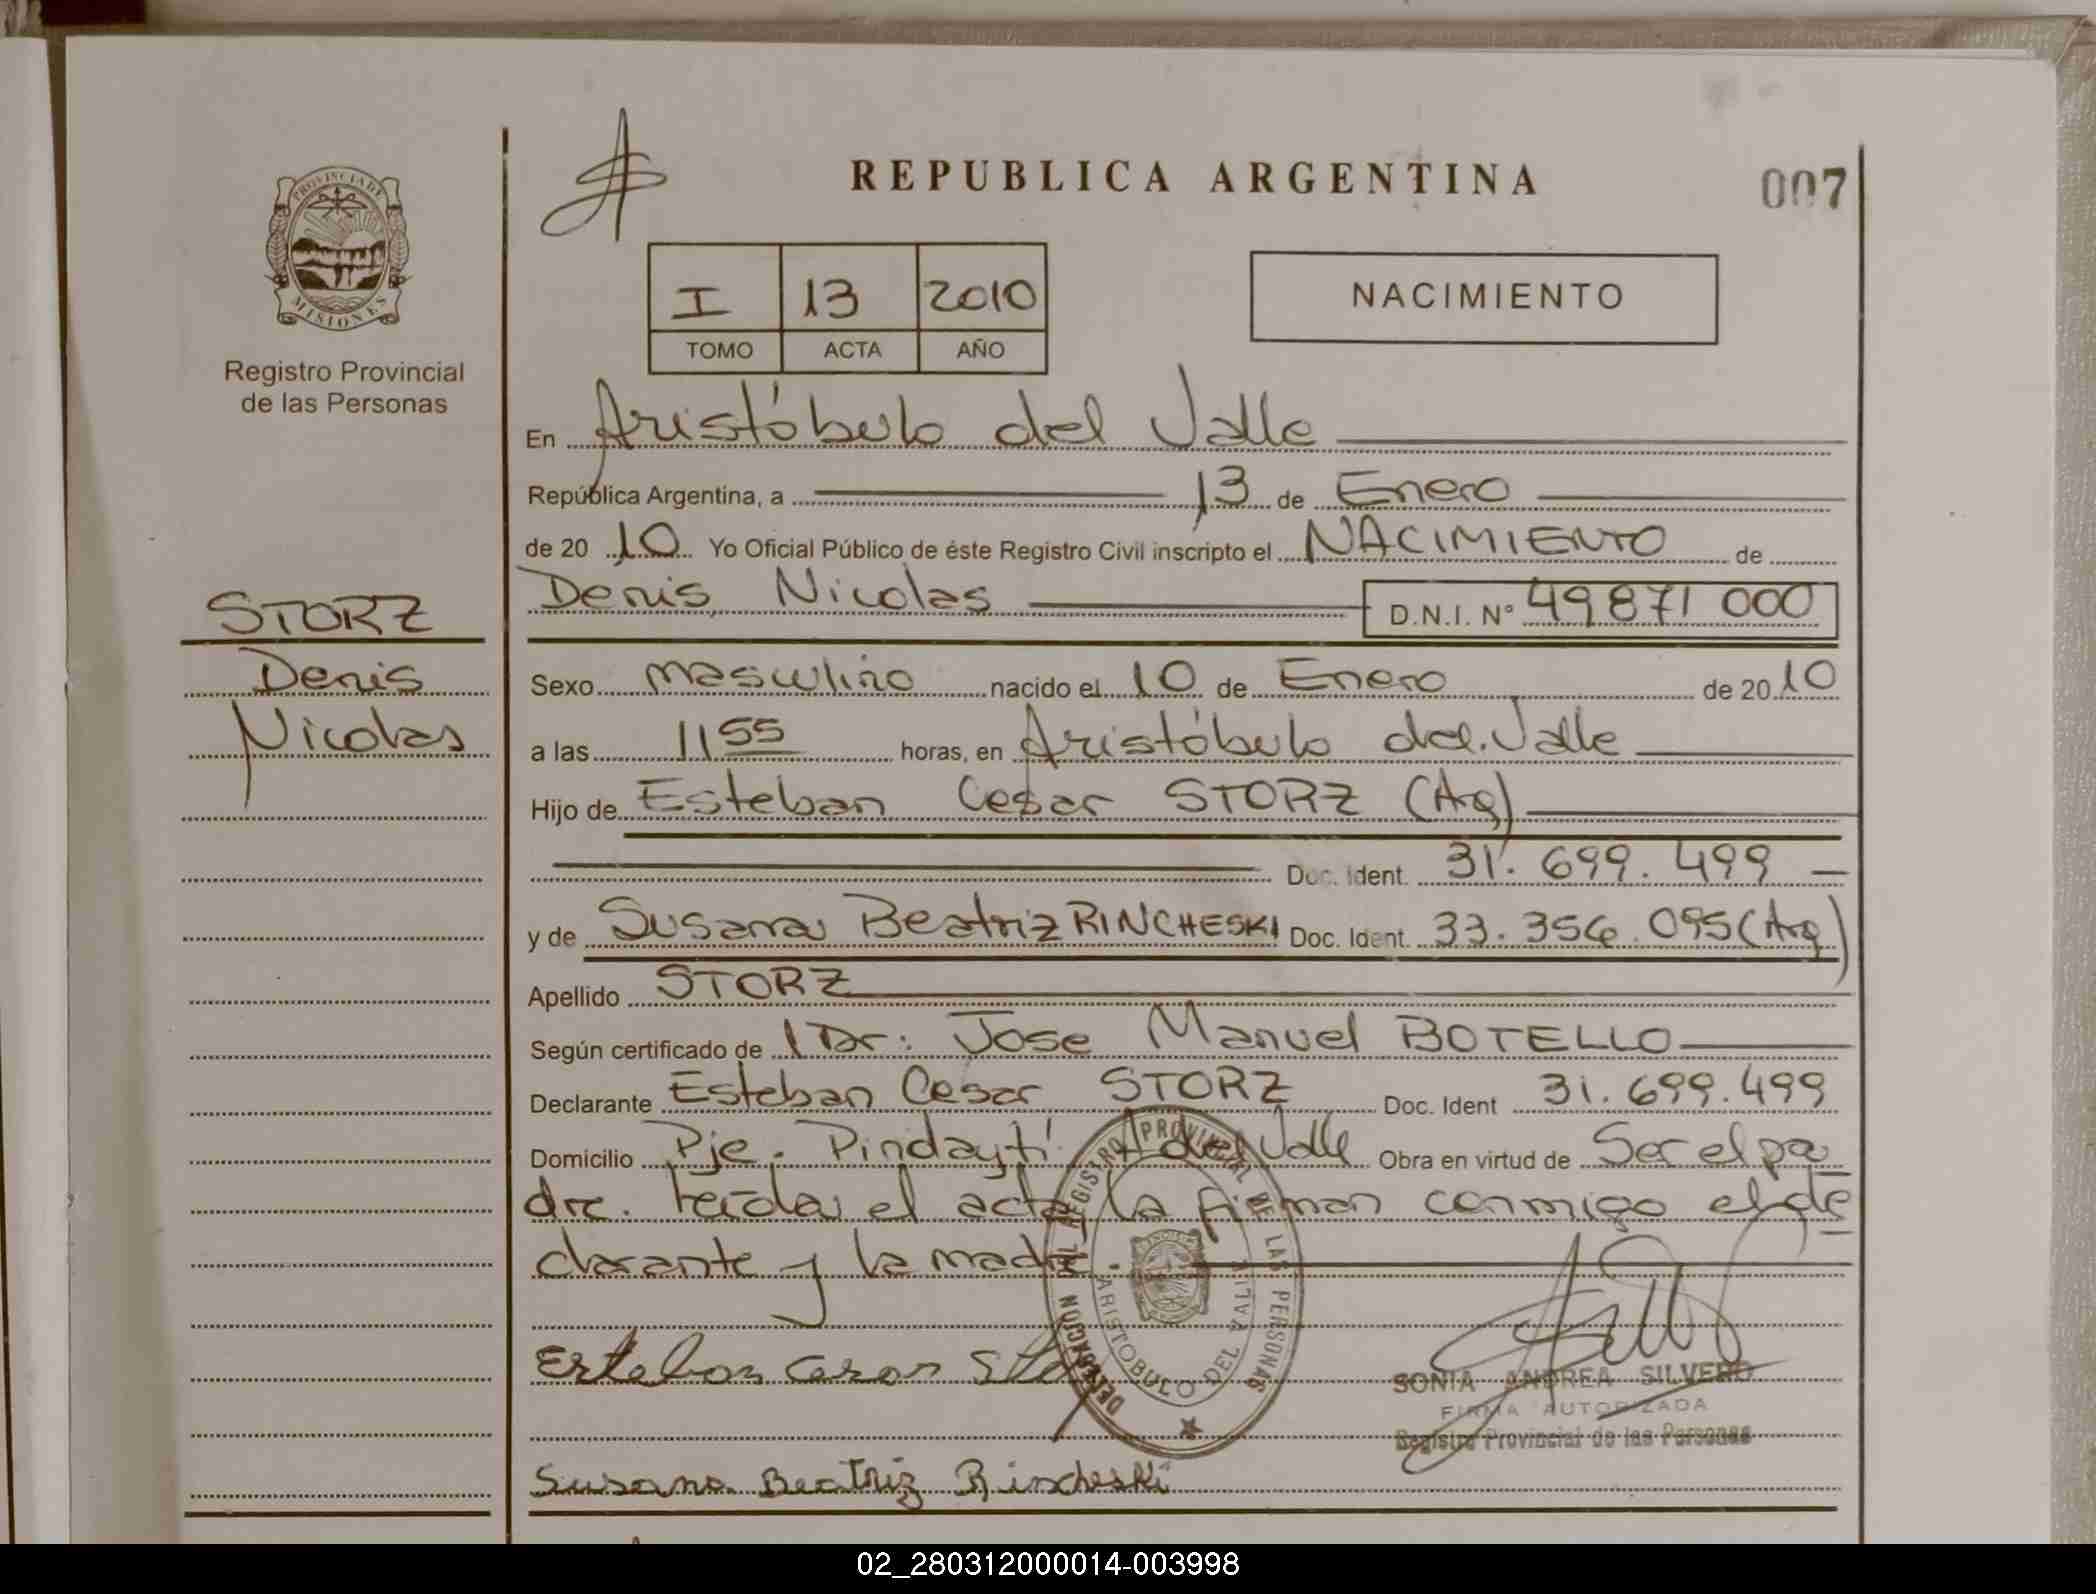 REPUBLICA ARGENTINA
007
PROVINCIA DE
MISIONES
Registro Provincial
de las Personas
I 13 2010
TOMO ACTA AÑO
NACIMIENTO
En Aristóbulo del Valle
República Argentina, a 13 de Enero
de 20 10 Yo Oficial Público de éste Registro Civil inscripto el NACIMIENTO de
Denis Nicolas D.N.I. Nº 49871000
STORZ
Denis
Nicolas
Sexo masculino nacido el 10 de Enero de 20 10
a las 11 55 horas, en Aristóbulo del Valle
Hijo de Esteban Cesar STORZ (Arg)
Doc. Ident. 31.699.499
y de Susana Beatriz RINCHESKI Doc. Ident. 33.356.095 (Arg)
Apellido STORZ
Según certificado de Dr. Jose Manuel BOTELLO
Declarante Esteban Cesar STORZ Doc. Ident 31.699.499
Domicilio Pje. Pindaytí A del Valle Obra en virtud de Ser el pa
dre. Leída el acta, la firman conmigo el de
clarante y la madre.
Esteban Cesar
DELEGACION DEL REGISTRO PROVINCIAL DE LAS PERSONAS
ARISTOBULO DEL VALLE
SONIA ANDREA SILVERO
FIRMA AUTORIZADA
Registro Provincial de las Personas
Susana Beatriz Rincheski
02_280312000014-003998